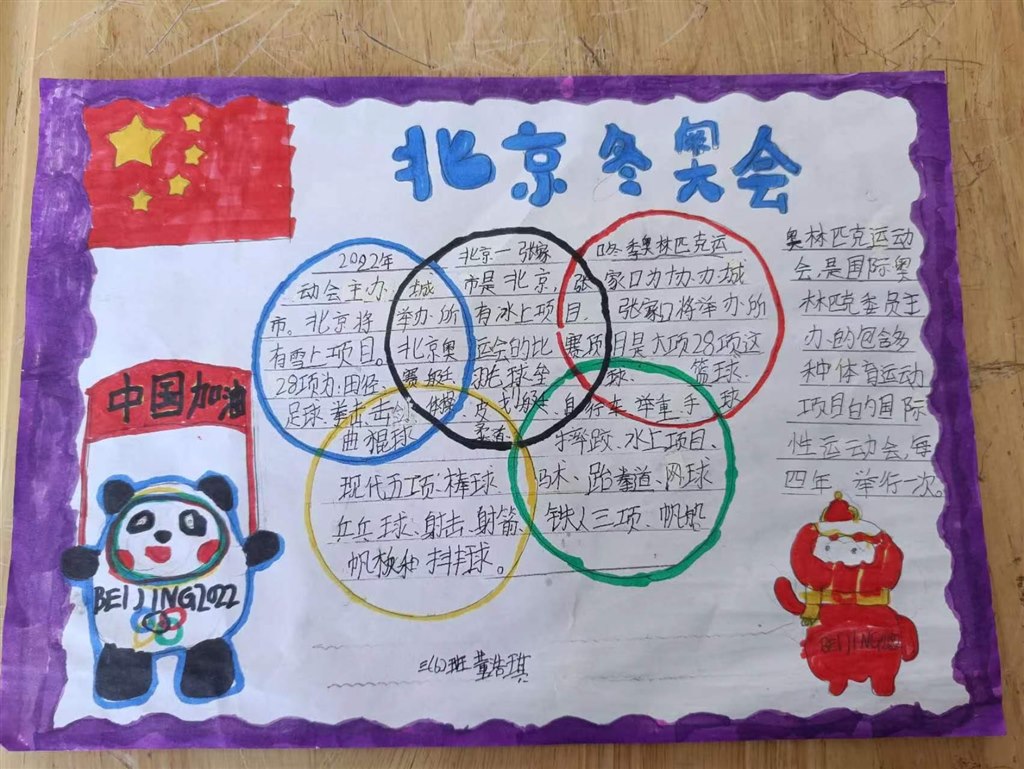 北京冬奥会
2022年 北京一张家 口冬季奥林匹克运
动会主办 城 市是北京,张 家口为协办城
市。北京将 举办所 有冰上项目. 张家口将举办所
有雪上项目。 北京奥 运会的比 赛项目是大项28项这
28项为,田径、赛艇、羽毛球垒 球、 篮球、
足球、拳击、击剑、体操、皮划艇、自行车、举重、手球
曲棍球 柔道 摔跤、水上项目、
现代五项、棒球、马术、跆拳道、网球
乒乓球、射击、射箭 铁人三项、帆船
帆板和排球。
奥林匹克运动
会,是国际奥
林匹克委员主
办的包含多
种体育运动
项目的国际
性运动会,每
四年 举行一次。
中国加油
BEIJING2022
BEIJING
三(6)班 董浩琪